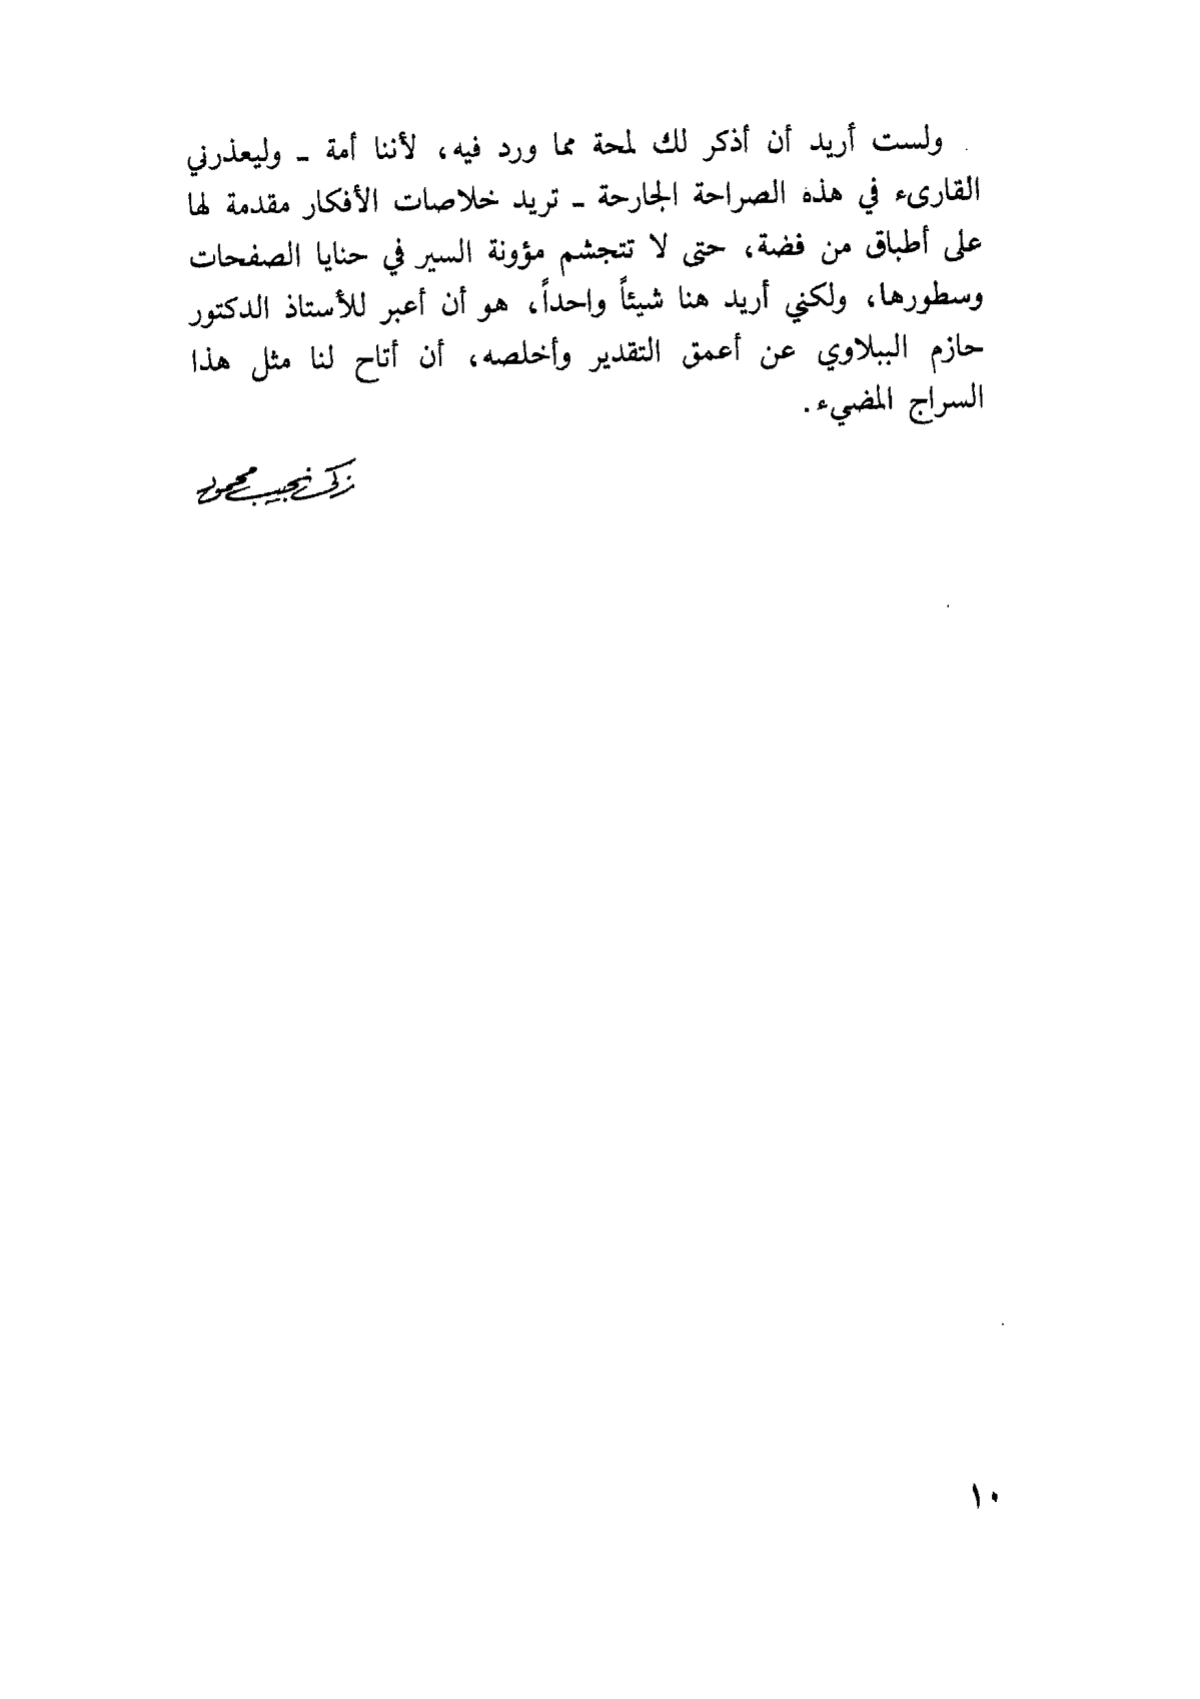 ولست أريد أن أذكر لك لمحة مما ورد فيه، لأننا أمة ـ وليعذرني
القارىء في هذه الصراحة الجارحة ـ تريد خلاصات الأفكار مقدمة لها
على أطباق من فضة، حتى لا تتجشم مؤونة السير في حنايا الصفحات
وسطورها، ولكني أريد هنا شيئاً واحداً، هو أن أعبر للأستاذ الدكتور
حازم الببلاوي عن أعمق التقدير وأخلصه، أن أتاح لنا مثل هذا
السراج المضيء.
زكي نجيب محمود
١٠